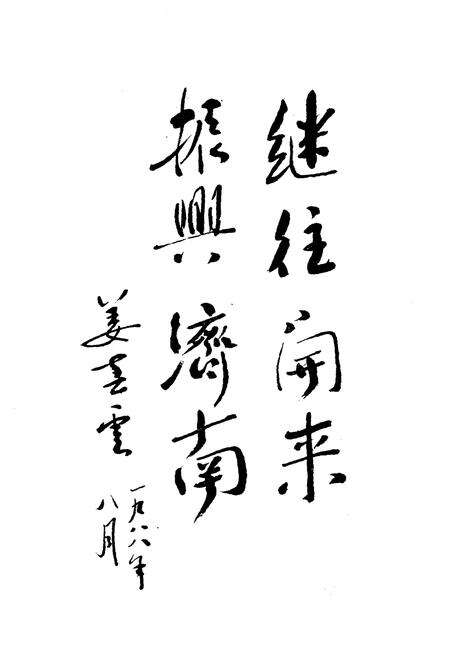 继往開来
振興濟南
姜春雲
一九八八年
八月